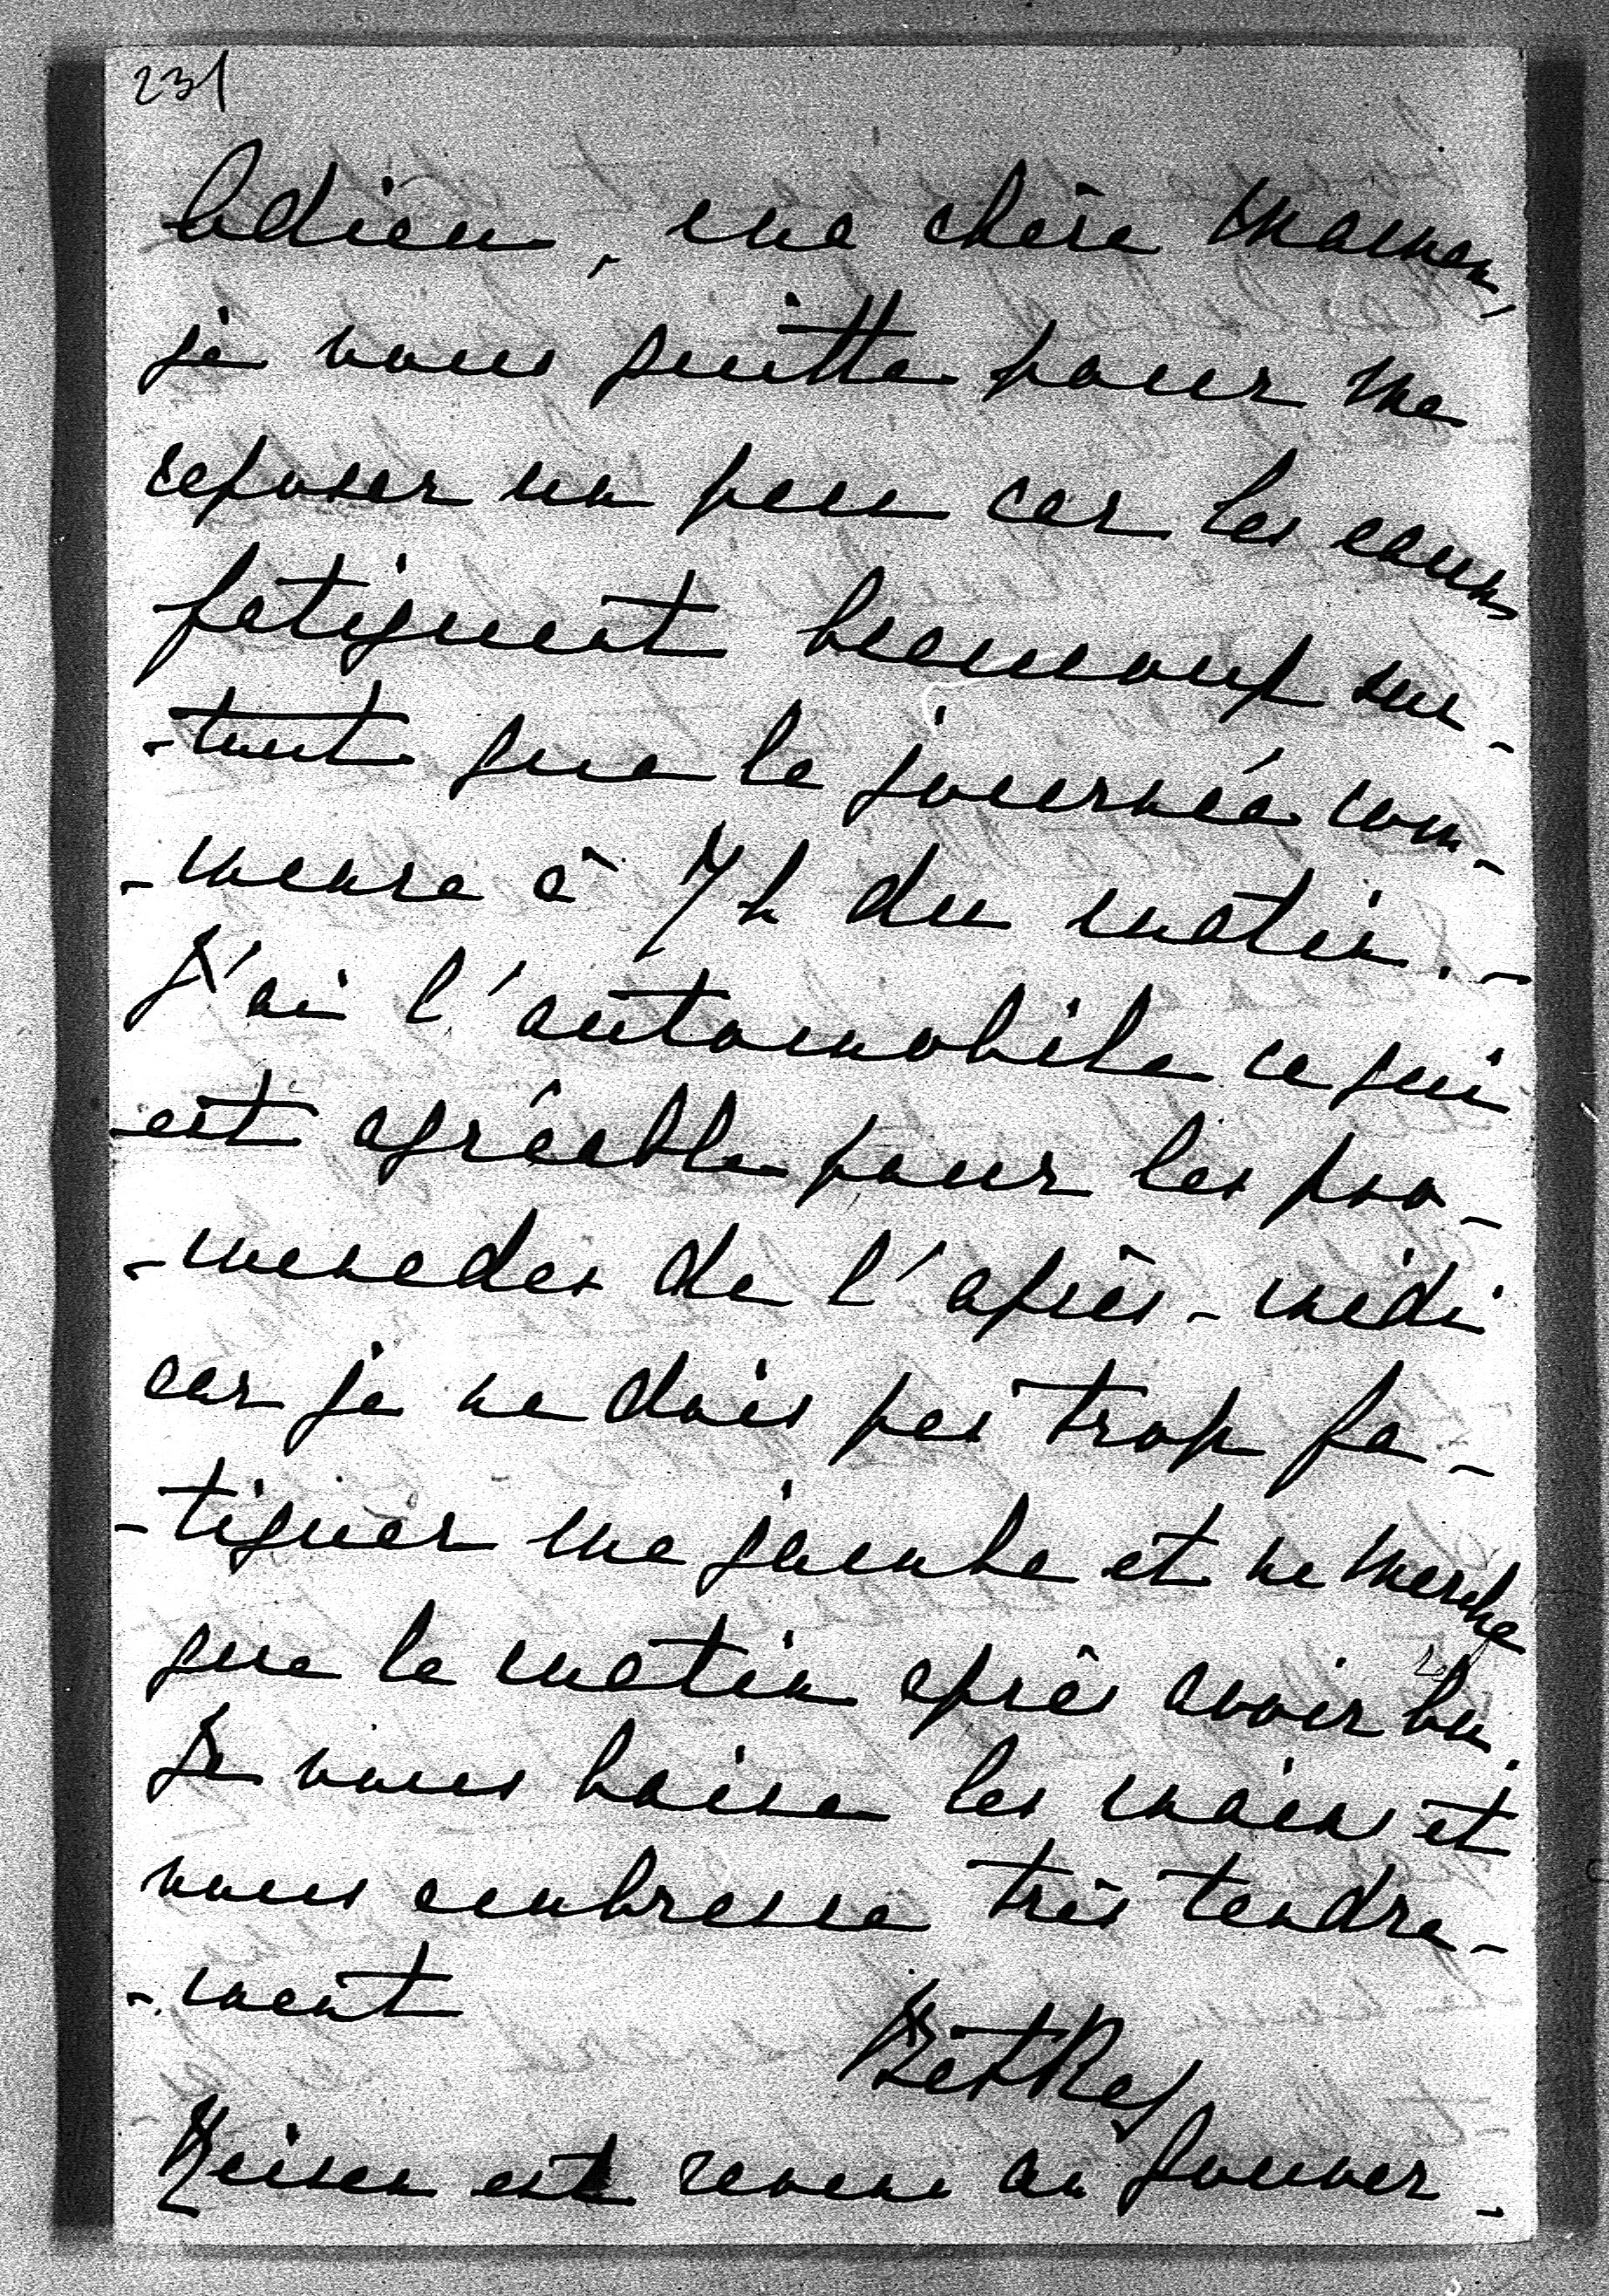 231
Adieu, ma chère maman,
je vous quitte pour me
reposer un peu car les eaux
fatiguent beaucoup sur-
-tout que la journée com-
-mence à 7 h du matin. -
J'ai l'automobile ce qui
est agréable pour les pro-
-menades de l'après-midi
car je ne dois pas trop fa-
-tiguer ma jambe et ne marche
que le matin après avoir bu.
Je vous baise les mains et
vous embrasse très tendre-
-ment
est revenu au gouver-